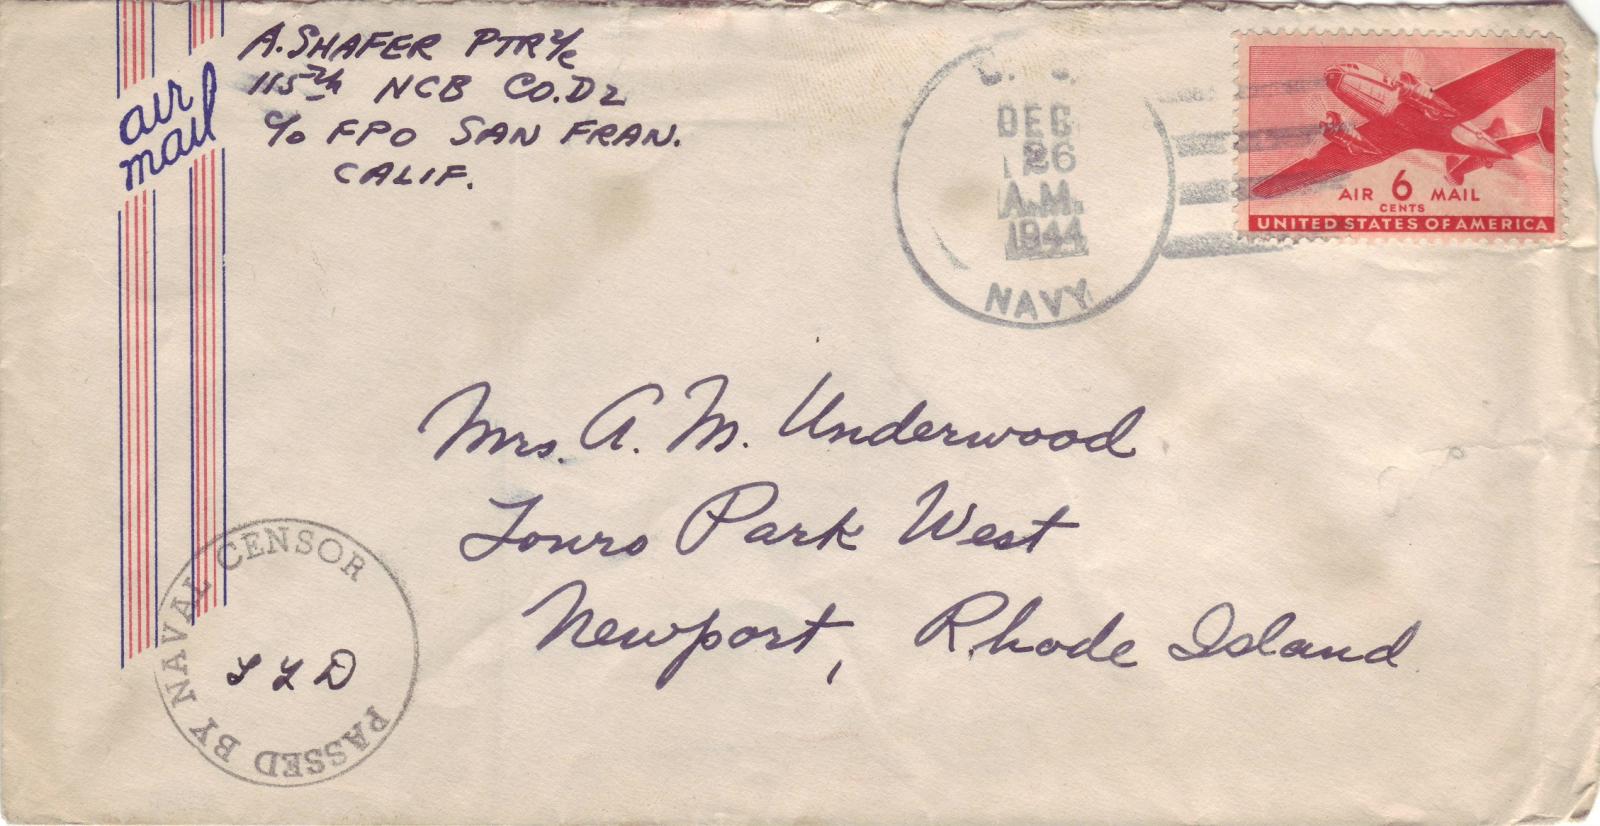 A. SHAFER PTR 2/c
115th NCB CO. D2
c/o FPO SAN FRAN.
CALIF.
air
mail
DEC
26
A.M.
1944
NAVY
AIR 6 MAIL
CENTS
UNITED STATES OF AMERICA
Mrs. A. M. Underwood
Touro Park West
Newport, Rhode Island
PASSED BY NAVAL CENSOR